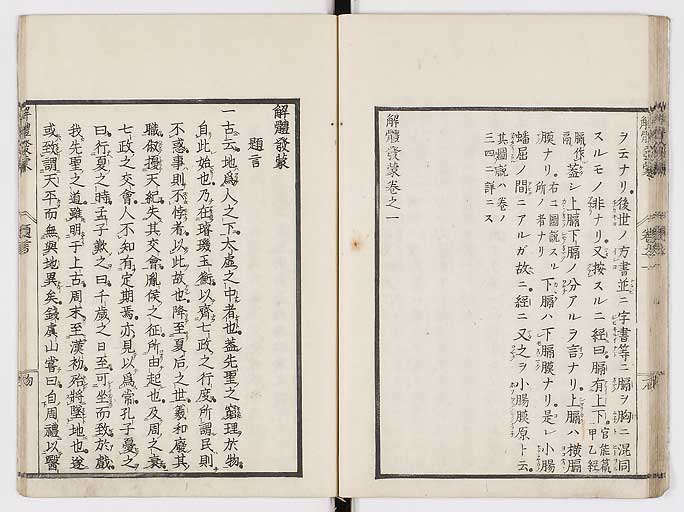 ヲ云ナリ後世ノ方書並ニ字書等ニ膈ヲ胸ニ混同
スルモノ非ナリ又按スルニ經曰膈有上下官能篇甲乙經
膈作蓋シ上膈下膈ノ分アルヲ言ナリ上膈ハ橫膈
膜ナリ右ニ圖説スル所ノ者ナリ下膈ハ下膈膜ナリ是レ小腸
蟠屈ノ間ニアルガ故ニ經ニ又之ヲ小腸膜原ト云
其圖説ハ卷ノ三四ニ詳ニス
解體發蒙卷之一
解體發蒙
題言
一古云地爲人之下太虚之中者也蓋先聖之窮理於物
自此始也乃在璿璣玉衡以齊七政之行度所謂民則
不惑事則不悖者以此故也降至夏后之世羲和廢其
職俶擾天紀失其交會胤侯之征所由起也及周之衰
七政之交會人不知有定期焉亦見以爲常孔子憂之
曰行夏之時孟子歎之曰千歳之日至可坐而致於戲
我先聖之道雖明于上古周末至漢初殆將墜地也遂
或致謂天平而無與地異矣錢虞山嘗曰自周禮以醫
解體發蒙
題言